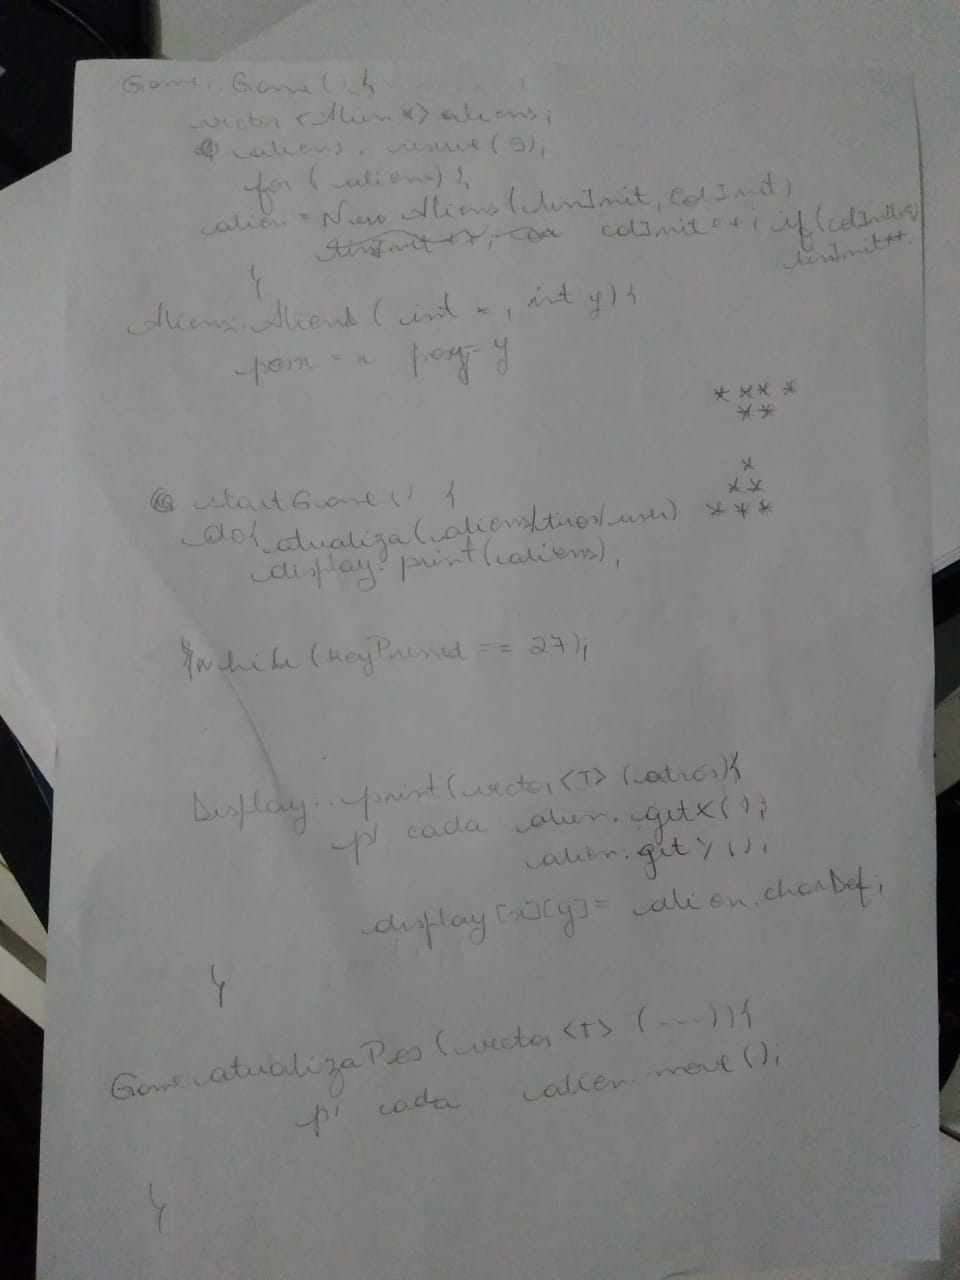 Game::Game(){
vector <Alien*> aliens;
aliens.
for (aliens) {
alien = New Aliens(linInit, colInit)
linInit++; colInit++; if(colInit
linInit++.
}
Aliens::Aliens (int x, int y){
posx = x posy = y
* ** *
**
*
startGame() {
**
do{ atualiza(aliens/tiros/user) ***
display.print(aliens);
}while (keyPressed == 27);
Display::print(vector<T> (
p/ cada alien.getX();
alien.getY();
display[x][y] = alien.charDef;
}
Game::atualizaPos(vector<T> (....)){
p/ cada alien.move();
}